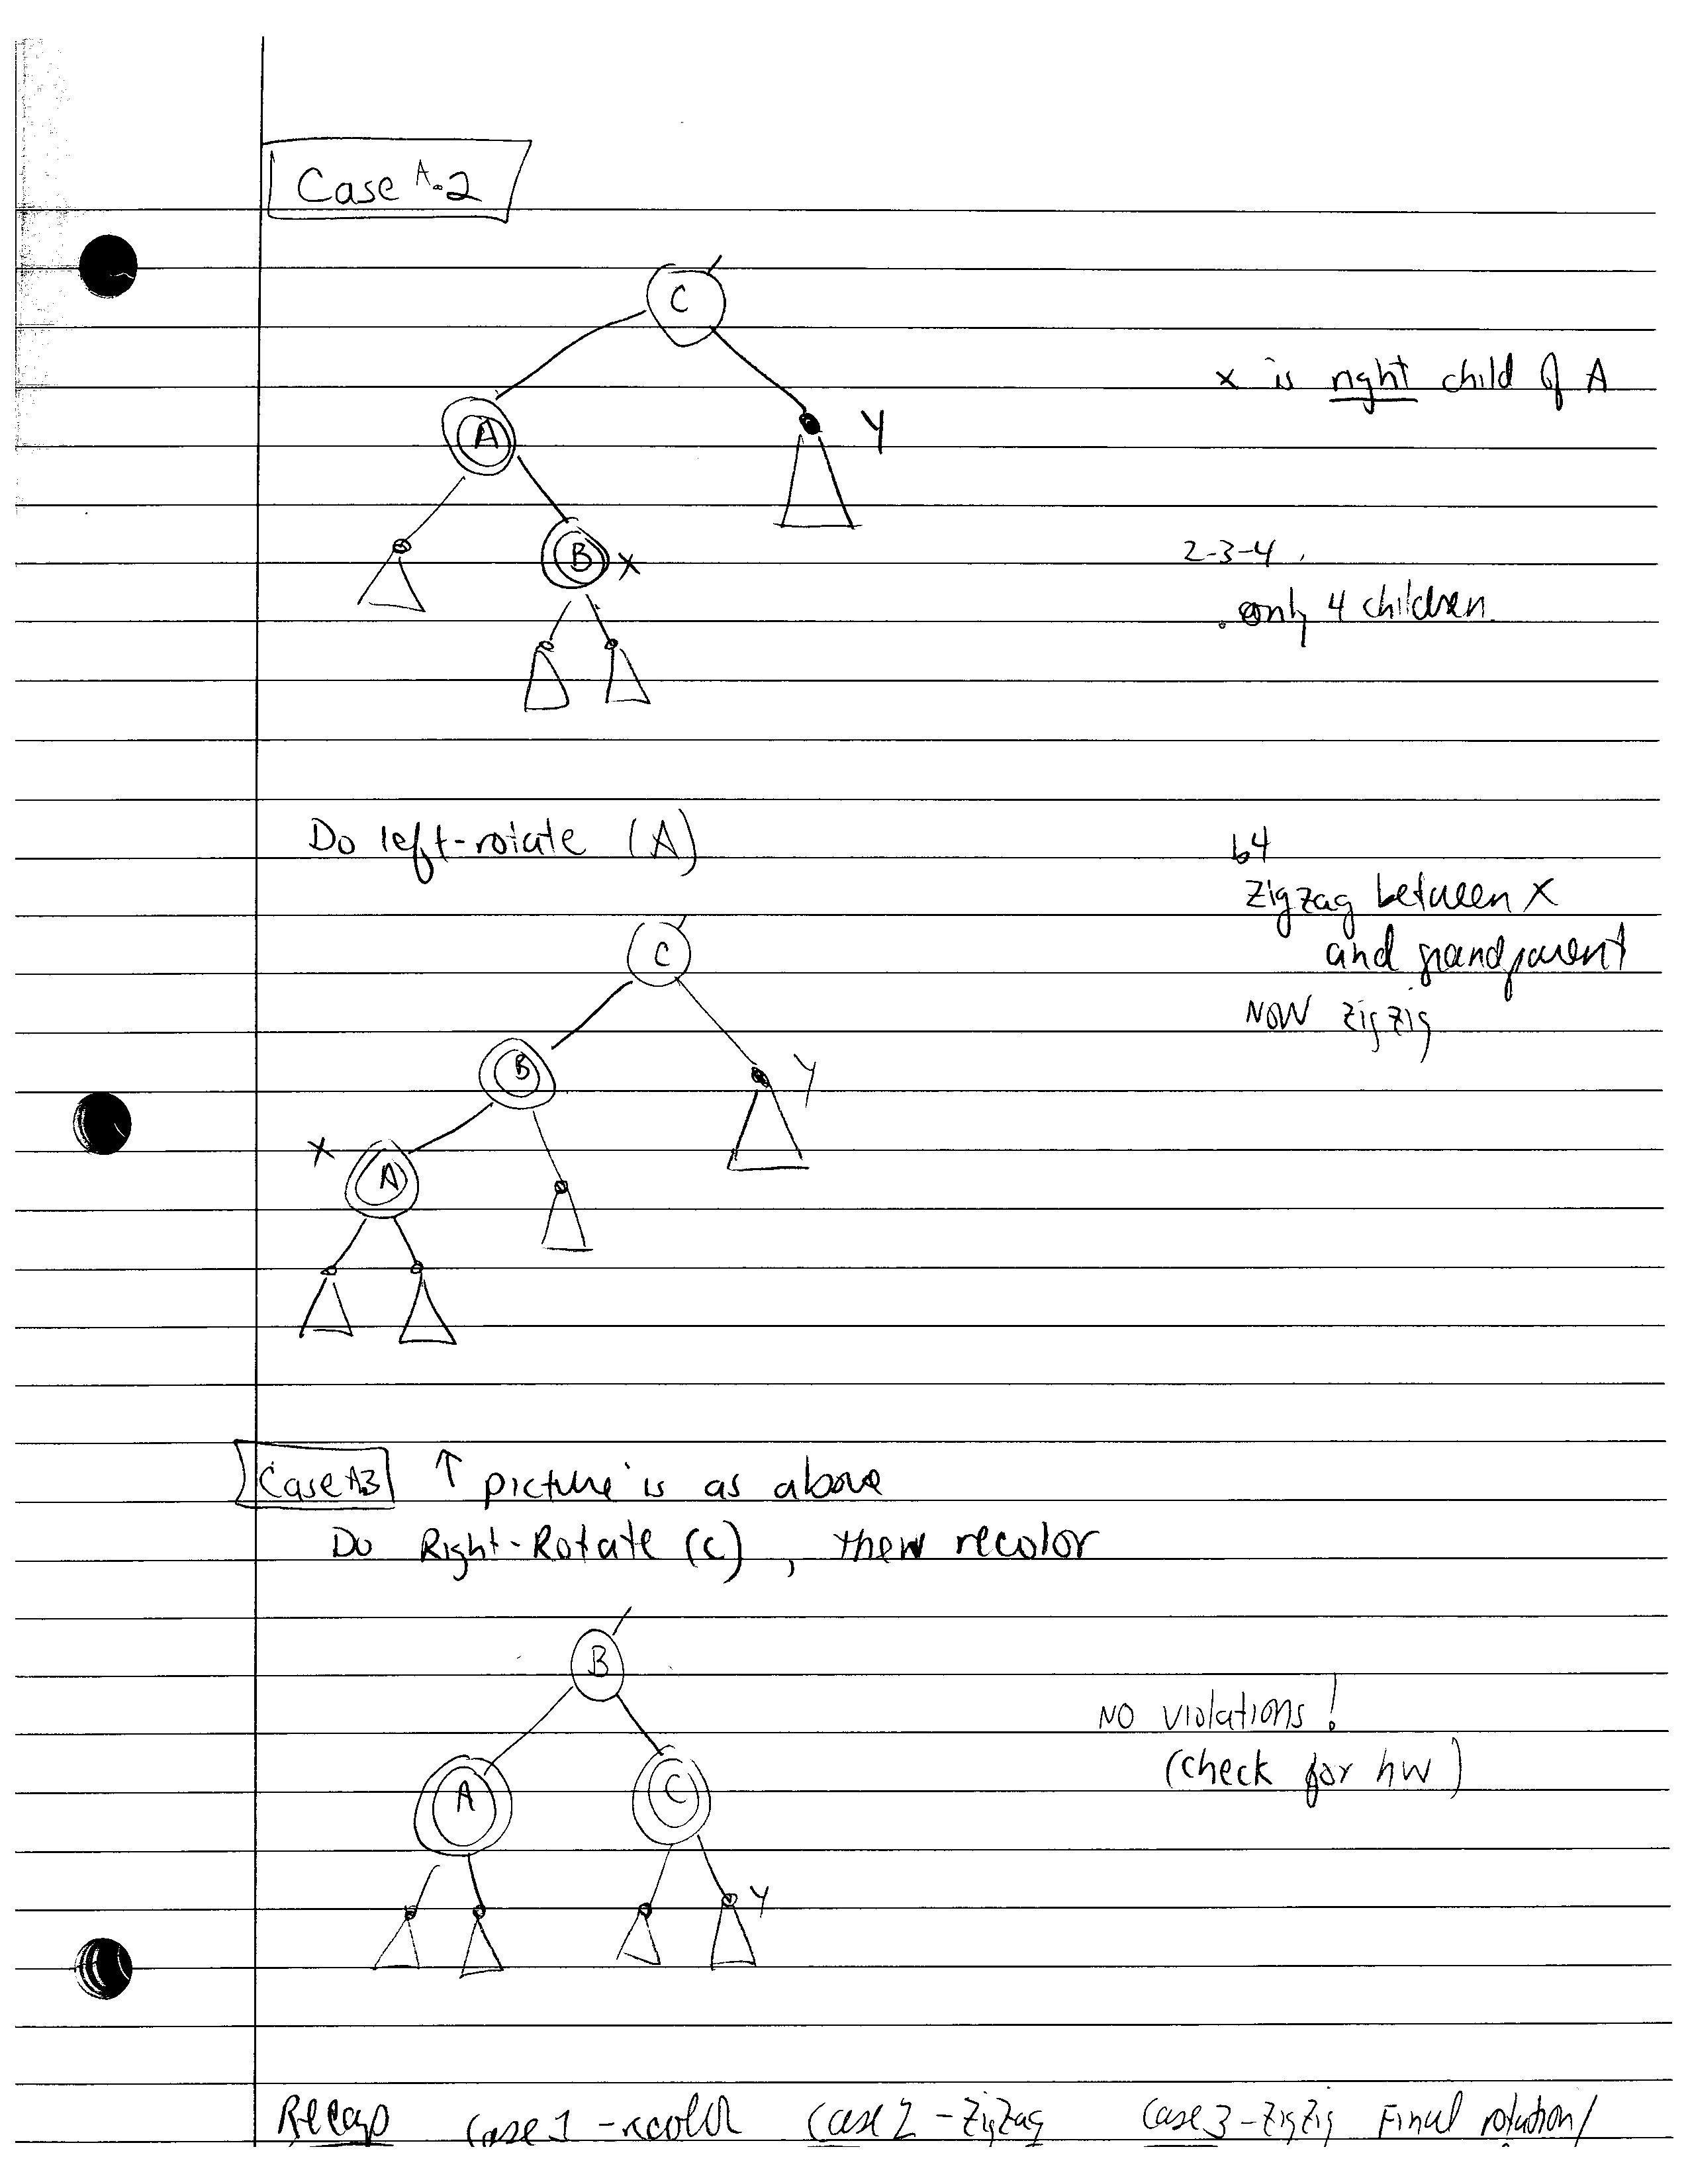 Case A.2
C
x is right child of A
A
Y
B x
2-3-4
only 4 children
Do left-rotate (A)
b4
zigzag between x
and grandparent
NOW zigzig
C
B
Y
x
A
Case A3 ↑ picture is as above
Do Right-Rotate (C), then recolor
B
NO violations!
(check for hw)
A
C
Y
Recap Case 1 - recolor Case 2 - zigzag Case 3 - zigzig Final rotation/